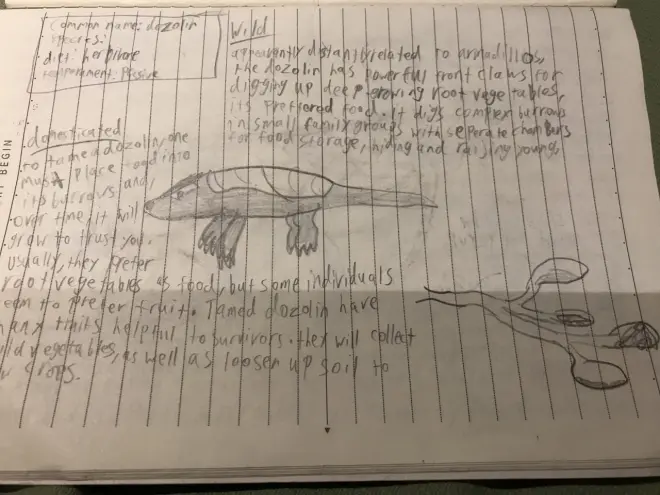 common name: dozolin
species:
diet: herbivore
temperament: Passive
Wild
apearently distantly related to armadillos,
the dozolin has powerful front claws for
digging up deep growing root vegetables,
its preffered food. it digs complex burrows
in small family groups with seperate chambers
for food storage, hiding and raising young.
domesticated
to tame a dozolin, one
must place food into
its burrows and,
over time, it will
grow to trust you.
usually, they prefer
root vegetables as food, but some individuals
seem to prefer fruit. Tamed dozolin have
many traits helpful to survivors. they will collect
wild vegetables, as well as loosen up soil to
crops.
BEGIN